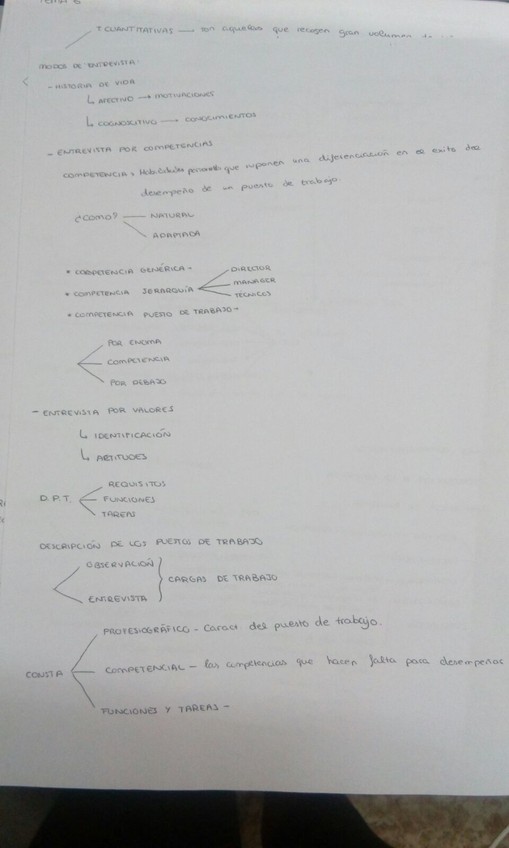 T CUANTITATIVAS — son aquellas que recogen gran volumen
MODOS DE ENTREVISTA:
- HISTORIA DE VIDA
↳ AFECTIVO → MOTIVACIONES
↳ COGNOSCITIVO → CONOCIMIENTOS
- ENTREVISTA POR COMPETENCIAS
COMPETENCIA = Habilidades personales que suponen una diferenciación en el exito del
desempeño de un puesto de trabajo.
¿COMO? — NATURAL
ADAPTADA
• COMPETENCIA GENÉRICA -
DIRECTOR
• COMPETENCIA JERARQUÍA
MANAGER
TÉCNICOS
• COMPETENCIA PUESTO DE TRABAJO -
POR ENCIMA
COMPETENCIA
POR DEBAJO
- ENTREVISTA POR VALORES
↳ IDENTIFICACIÓN
↳ ACTITUDES
REQUISITOS
D.P.T. FUNCIONES
TAREAS
DESCRIPCIÓN DE LOS PUESTOS DE TRABAJO
OBSERVACIÓN
CARGAS DE TRABAJO
ENTREVISTA
PROFESIOGRÁFICO - Caract del puesto de trabajo.
CONSTA COMPETENCIAL - las competencias que hacen falta para desempeñar
FUNCIONES Y TAREAS -